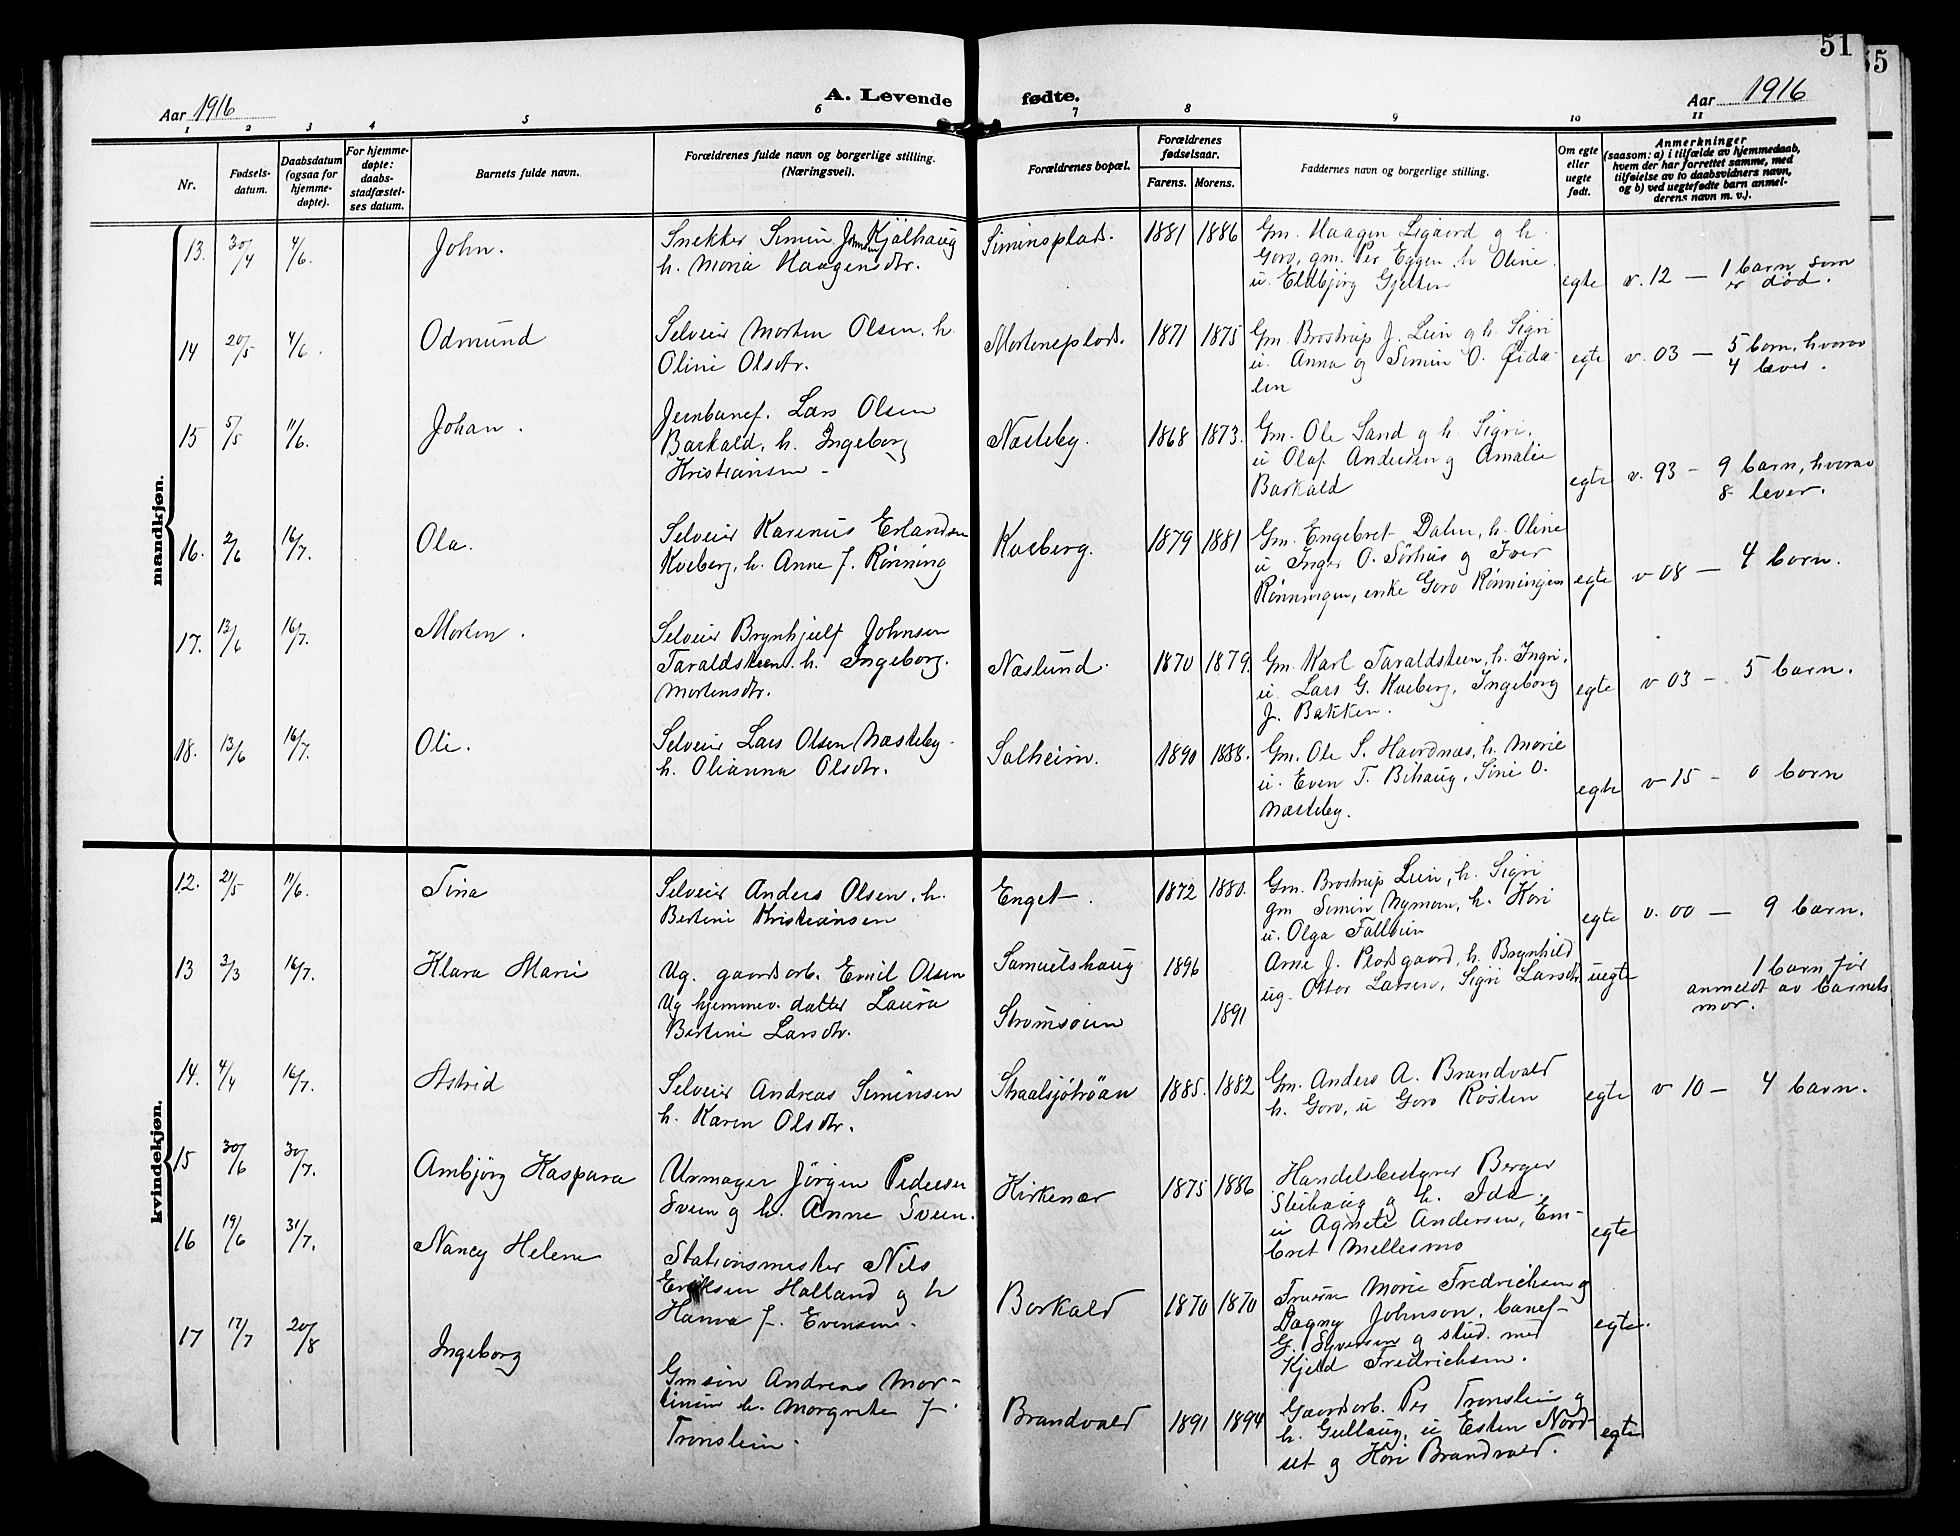 51
55
Aar 1916
A. Levende fødte.
Aar 1916
1 2 3 4 5 6 7 8 9 10 11
Nr.
Fødsels-
datum.
Daabsdatum
(ogsaa for
hjemme-
døpte).
For hjemme-
døpte:
daabs-
stadfæstel-
ses datum.
Barnets fulde navn.
Forældrenes fulde navn og borgerlige stilling.
(Næringsvei).
Forældrenes bopæl.
Forældrenes
fødselsaar.
Farens. Morens.
Faddernes navn og borgerlige stilling.
Om egte
eller
uegte
født.
Anmerkninger
(saasom: a) i tilfælde av hjemmedaab,
hvem der har forrettet samme, med
tilføielse av to daabsvidners navn,
og b) ved uegtefødte barn anmel-
derens navn m. v.).
mandkjøn.
13. 30/4 4/6. John.
Snekker Simen Johnsen Kjølhaug
h. Maria Haagensdtr.
Simensplads. 1881 1886
Gm. Haagen Ligaard og h.
Goro, gm. Per Eggen, h. Oline
u. Eldbjørg Gjelten
egte v. 12 — 1 barn som
er død.
14 20/5 4/6. Odmund
Selveier Morten Olsen, h.
Oline Olsdtr.
Mortensplads. 1871 1875
Gm. Brostrup J. Lien og h. Sigri
u. Anna og Simen O. Øida-
len
egte v. 03 — 5 barn, hvorav
4 lever.
15 5/5 11/6. Johan.
Jernbanef. Lars Olsen
Barkald, h. Ingeborg
Kristiansen -
Næsteby. 1868 1873.
Gm. Ole Sand og h. Sigri,
u Olaf Andersen og Amalie
Barkald
egte v. 93 - 9 barn, hvorav
8 lever.
16. 2/6 16/7. Ola.
Selveier Karenus Erlandsen
Kveberg, h. Anne f. Rønning
Kveberg. 1879 1881
Gm. Engebret Dalen, h. Oline
u Inger O. Sørhus og Iver
Rønningen, enke Goro Rønningen
egte v 08 — 4 barn.
17. 13/6 16/7. Morten.
Selveier Brynhjulf Johnsen
Taraldsteen. h. Ingeborg.
Mortensdtr.
Næslund. 1870 1879.
Gm. Karl Taraldsteen, h. Ingri,
u. Lars G. Kveberg, Ingeborg
J. Bakken.
egte v 03 - 5 barn.
18. 13/6 16/7. Ole.
Selveier Lars Olsen Næsteby.
h. Olianna Olsdtr.
Solheim. 1890 1888.
Gm. Ole S. Havrdnæs, h. Marie
u. Even T. Bihaug, Sine O.
Næsteby.
egte v 15 - 0 barn
kvindekjøn.
12. 21/5 11/6. Tina
Selveier Anders Olsen, h.
Bertine Kristiansen
Enget. 1872 1880.
Gm. Brostrup Lien, h. Sigri
gm Simen Nyman, h. Kari
u. Olga Falløien
egte v. 00 — 9 barn.
13 3/3 16/7. Klara Marie
Ug. gaardsarb. Emil Olsen
Ug hjemmev. datter Laura
Bertine Larsdtr.
Samuelshaug 1896
Strømsøien 1891
Arne J. Plodsgaard, h. Brynhild
ug. Ottar Larsen, Sigri Larsdtr.
uegte 1 barn før
anmeldt av barnets
mor.
14. 4/4 16/7. Astrid
Selveier Andreas Simensen
h. Karen Olsdtr.
Straalsjøhøan 1885. 1882
Gm. Anders A. Brandvald
h. Goro, u Goro Røsten
egte v 10 — 4 barn.
15 30/6 30/7. Ambjørg Kaspara
Urmager Jørgen Pedersen
Sveen og h. Anne Sveen.
Kirkenær 1875 1886
Handelsbestyrer Berger
Steihaug og h. Ida,
u Agnete Andersen, Em-
bret Mellesmo
egte
16 19/6 31/7. Nancy Helene
Stationsmester Nils
Eriksen Halland og h
Hanna f. Evensen.
Barkald 1870 1870
Fruerne Marie Fredrichsen og
Dagny Johnson, banef-
G. Syversen og stud. med
Kjeld Fredrichsen.
egte.
17 17/7 20/8 Ingeborg
Gmsøn Andreas Mor-
tinsen h. Margrete f.
Tronslien.
Brandvald 1891 1894
Gaardarb. Per Tronslien og
h. Gullaug, u Esten Nord-
set og Kari Brandvald.
egte